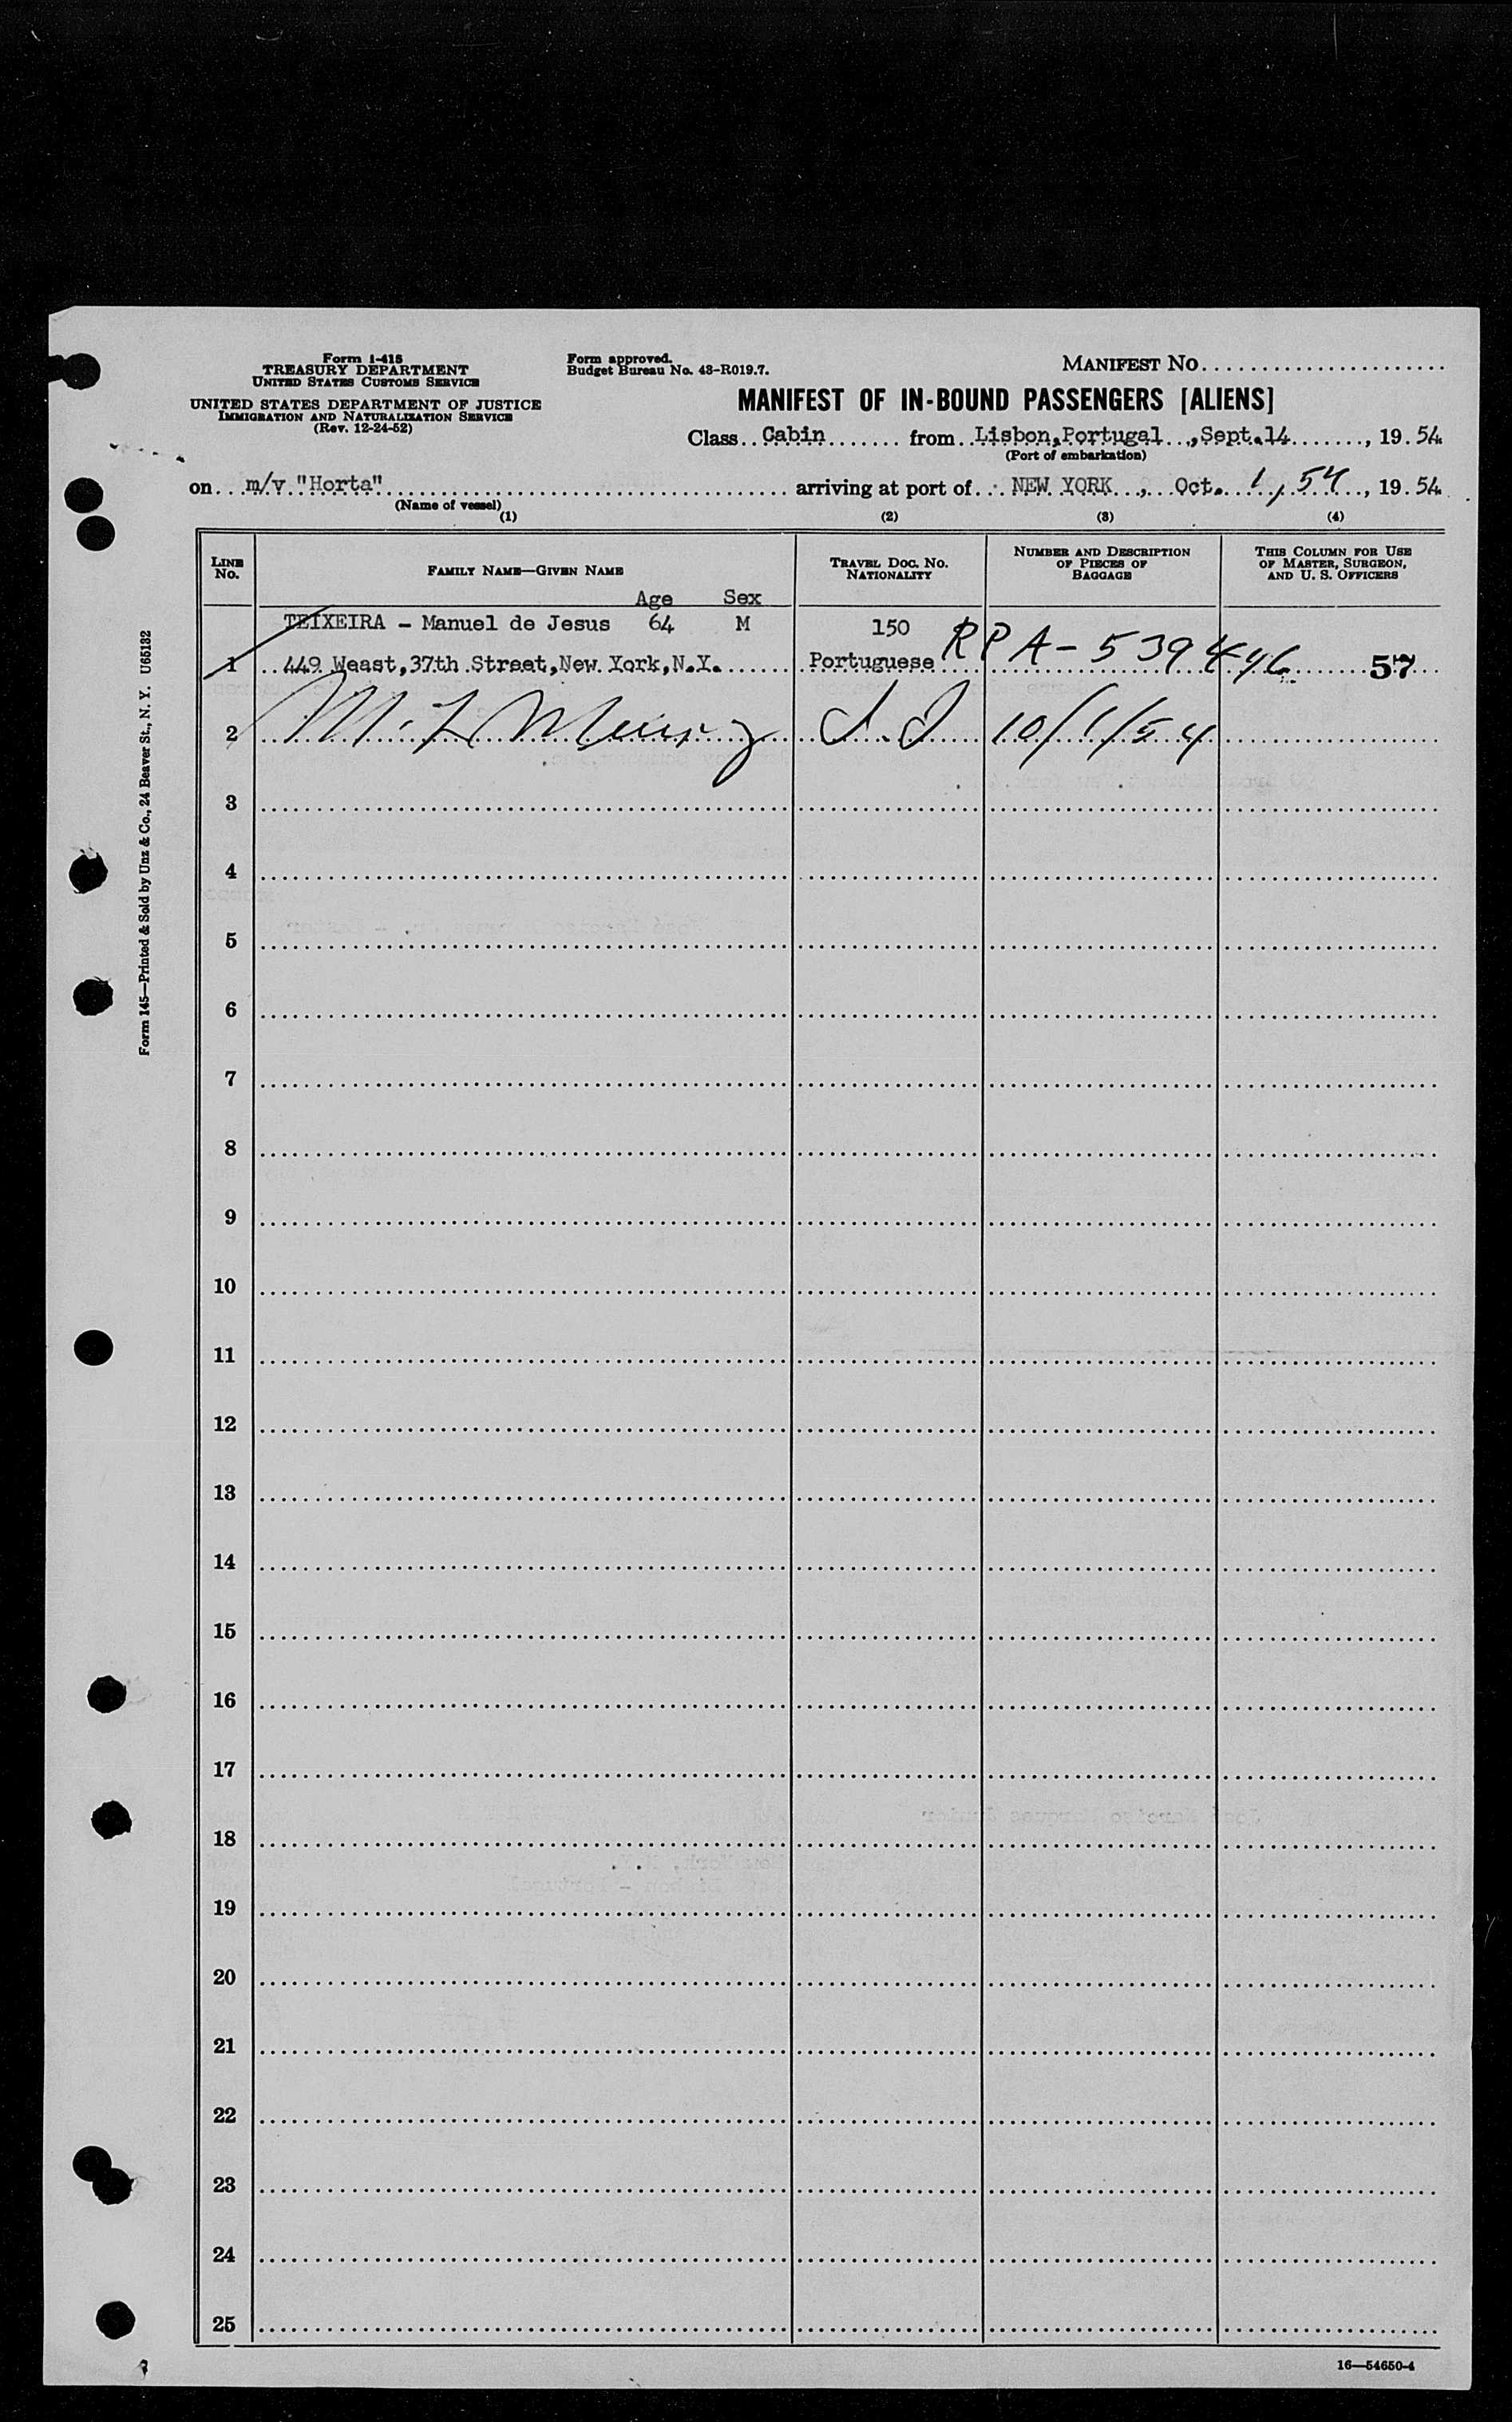 Form I-415
TREASURY DEPARTMENT
UNITED STATES CUSTOMS SERVICE
UNITED STATES DEPARTMENT OF JUSTICE
IMMIGRATION AND NATURALIZATION SERVICE
(Rev. 12-24-52)
Form approved.
Budget Bureau No. 43-R019.7.
MANIFEST NO.
MANIFEST OF IN-BOUND PASSENGERS [ALIENS]
Class Cabin from Lisbon, Portugal, Sept. 14, 19 54
(Port of embarkation)
on m/v "Horta" arriving at port of NEW YORK, Oct. 1, 54, 19 54
(Name of vessel)
(1) (2) (3) (4)
LINE NO.
FAMILY NAME—GIVEN NAME
Age Sex
TRAVEL DOC. NO. NATIONALITY
NUMBER AND DESCRIPTION OF PIECES OF BAGGAGE
THIS COLUMN FOR USE OF MASTER, SURGEON, AND U. S. OFFICERS
TEIXEIRA - Manuel de Jesus 64 M 150
1 449 Weast, 37th Street, New York, N.Y. Portuguese RP A-539446 57
2 10/1/54
3
4
5
6
7
8
9
10
11
12
13
14
15
16
17
18
19
20
21
22
23
24
25
16—54650-4
Form 145—Printed & Sold by Unz & Co., 24 Beaver St., N. Y. U65132